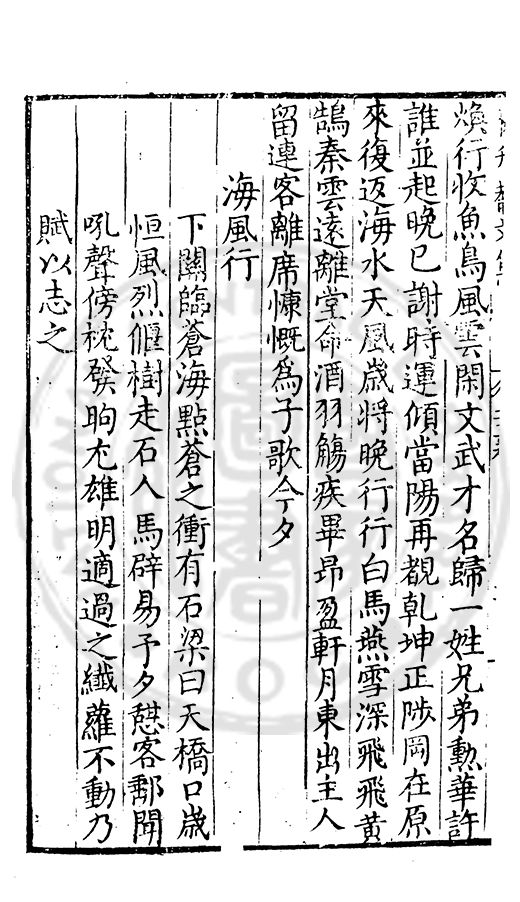 煥行收魚鳥風雲閑文武才名歸一姓兄弟勲華許
誰並起晚已謝時運傾當陽再覩乾坤正陟岡在原
來復返海水天風歲將晚行行白馬燕雪深飛飛黃
鵠秦雲遠離堂命酒羽觴疾畢昴盈軒月東出主人
留連客離席慷慨為子歌今夕
海風行
下關臨蒼海點蒼之衝有石梁曰天橋口歲
恒風烈偃樹走石人馬辟易予夕憇客鄱聞
吼聲傍枕發晌尤雄明適過之纎蘿不動乃
賦以志之